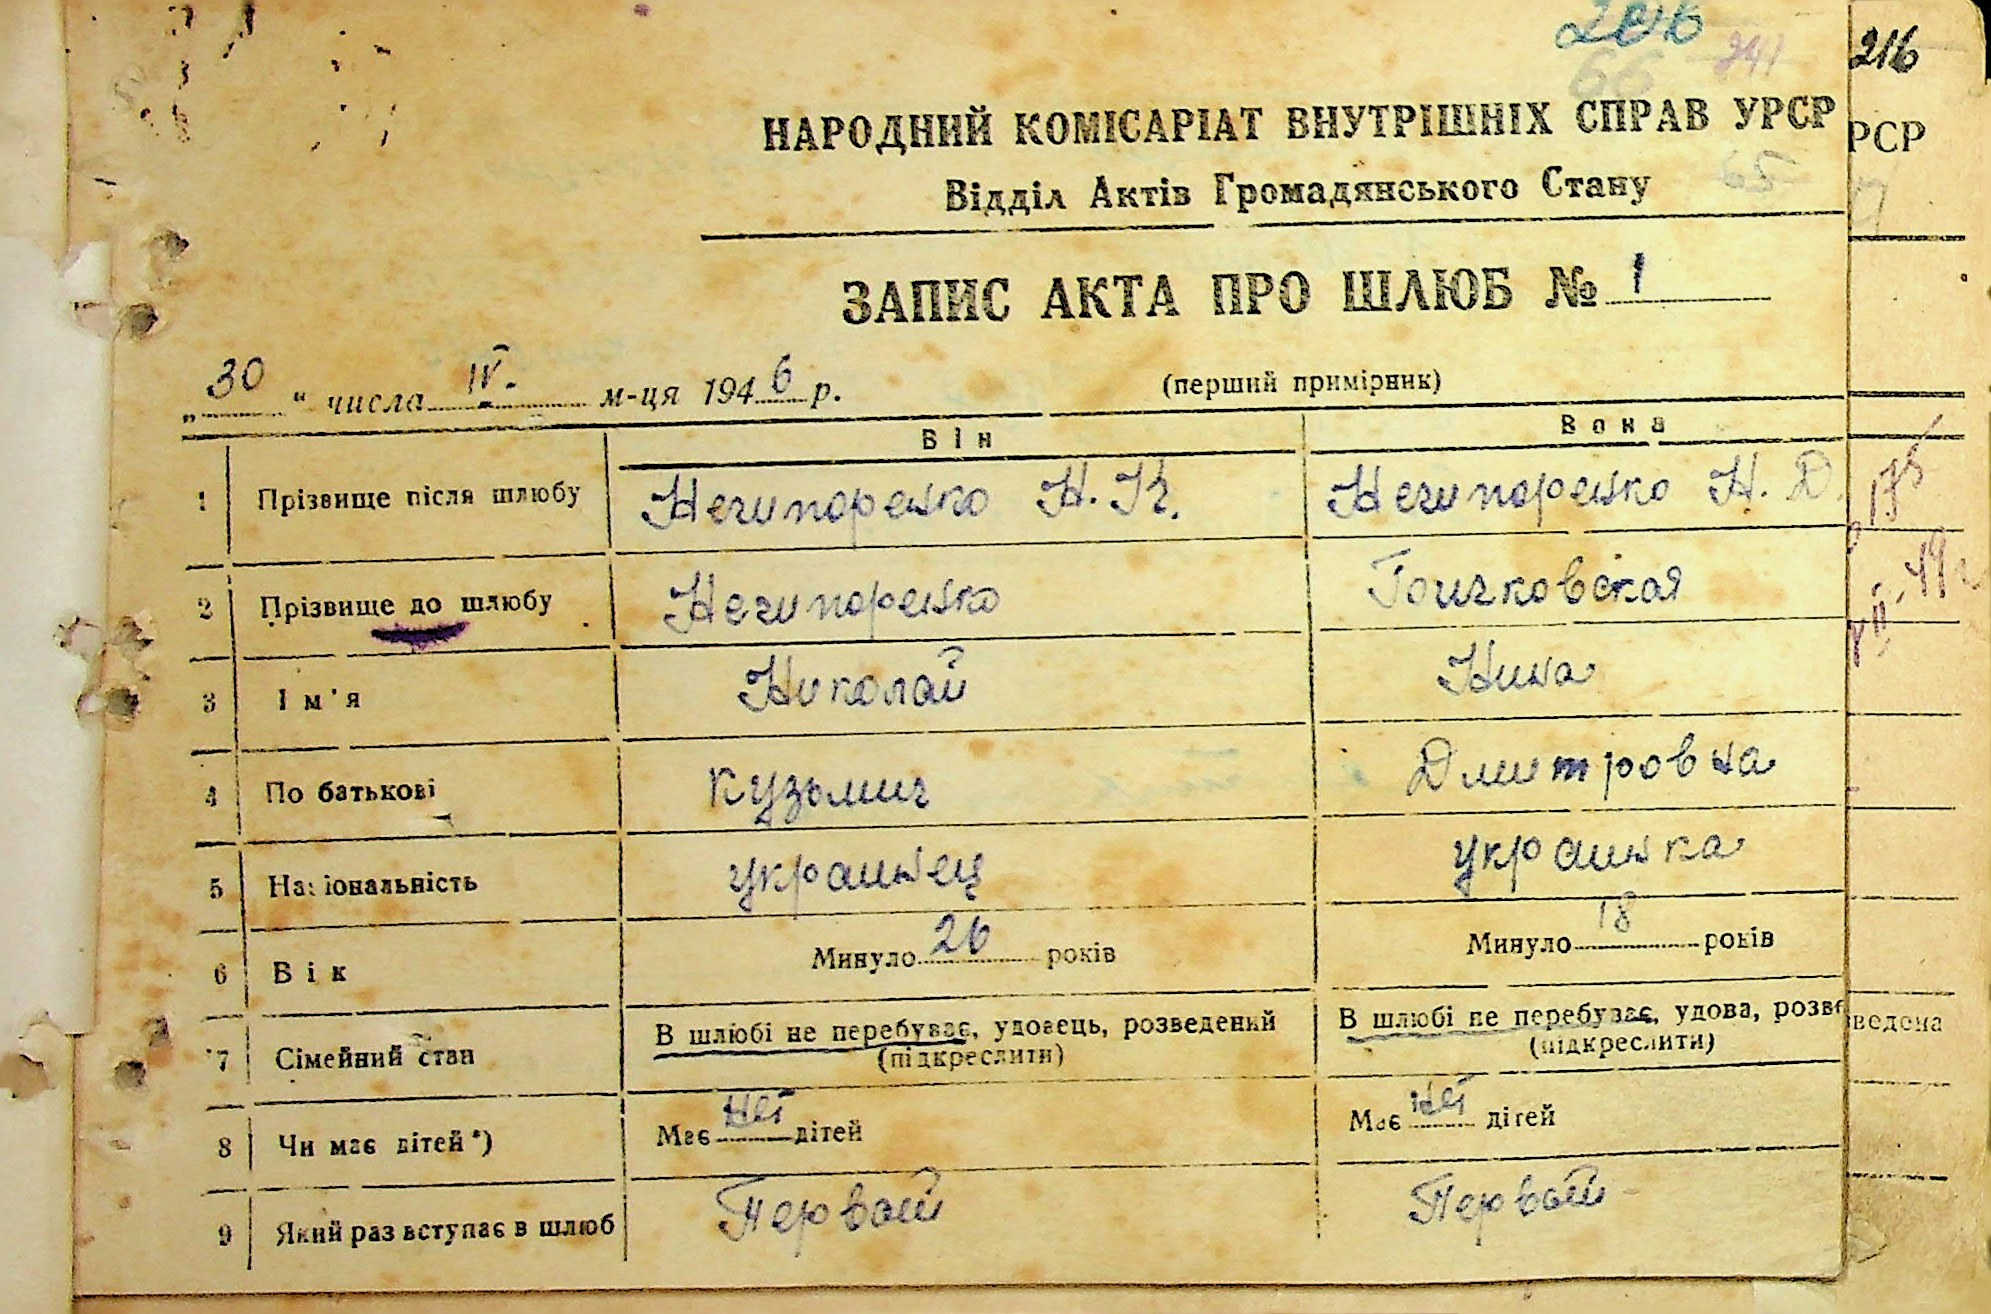 206
66 241
216
НАРОДНИЙ КОМІСАРІАТ ВНУТРІШНІХ СПРАВ УРСР
РСР
Відділ Актів Громадянського Стану
65
ЗАПИС АКТА ПРО ШЛЮБ № 1
„30“ числа IV. м-ця 1946 р. (перший примірник)
Він Вона
1 Прізвище після шлюбу Нечипоренко Н. К. Нечипоренко Н. Д.
2 Прізвище до шлюбу Нечипоренко Гончковская
3 Ім'я Николай Нина
4 По батькові Кузьмич Дмитровна
5 Національність украинец украинка
6 Вік Минуло 26 років Минуло 18 років
7 Сімейний стан В шлюбі не перебуває, удовець, розведений В шлюбі не перебуває, удова, розве
ведена
(підкреслити) (підкреслити)
8 Чи має дітей*) Має нет дітей Має нет дітей
9 Який раз вступає в шлюб Первой Первой